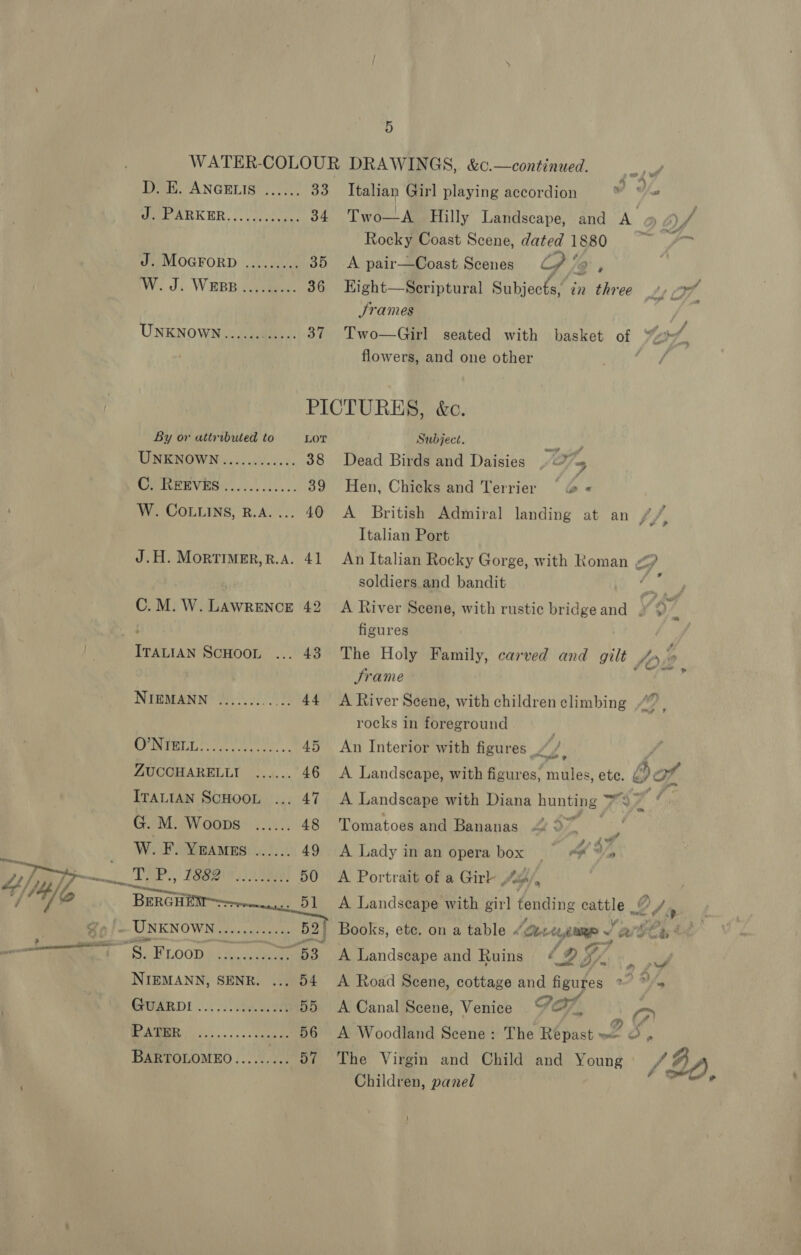 5
WATER-COLOUR DRAWINGS, &c.—continued.
D. E. ANGELIS ...... 33 Italian Girl playing accordion
J. PARKER............ 34 Two—A Hilly Landscape, and A
Rocky Coast Scene, dated 1880
J. MOGFORD ......... 35 A pair—Coast Scenes
W. J. WEBB ......... 36 Eight—Scriptural Subjects, in three
frames
UNKNOWN ............ 37 Two—Girl seated with basket of
flowers, and one other
PICTURES, &c.
By or attributed to LOT Subject.
UNKNOWN ............ 38 Dead Birds and Daisies
C. REEVES ............ 39 Hen, Chicks and Terrier
W. COLLINS, R.A. ... 40 A British Admiral landing at an
Italian Port
J.H. MORTIMER, R.A. 41 An Italian Rocky Gorge, with Roman
soldiers and bandit
C. M. W. LAWRENCE 42 A River Scene, with rustic bridge and
figures
ITALIAN SCHOOL ... 43 The Holy Family, carved and gilt
frame
NIEMANN ............ 44 A River Scene, with children climbing
rocks in foreground
O'NIELL............... 45 An Interior with figures
ZUCCHARELLI ...... 46 A Landscape, with figures, mules, etc.
ITALIAN SCHOOL ... 47 A Landscape with Diana hunting
G. M. WOODS ...... 48 Tomatoes and Bananas
W. F. YEAMES ...... 49 A Lady in an opera box
T. P., 1882 ......... 50 A Portrait of a Girl
BERGHEM ............ 51 A Landscape with girl tending cattle
UNKNOWN ............ 52 Books, etc. on a table
S. FLOOD ............ 53 A Landscape and Ruins
NIEMANN, SENR. ... 54 A Road Scene, cottage and figures
GUARDI ............... 55 A Canal Scene, Venice
PATER ............... 56 A Woodland Scene: The Repast
BARTOLOMEO ......... 57 The Virgin and Child and Young
Children, panel